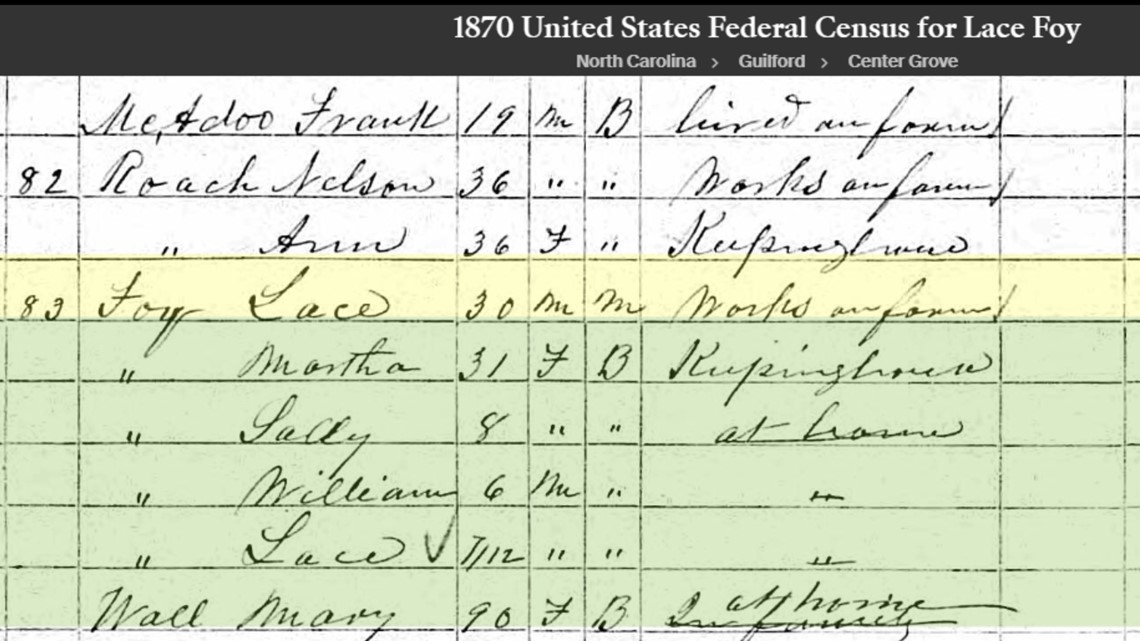 1870 United States Federal Census for Lace Foy
North Carolina > Guilford > Center Grove
McAdoo Frank 19 m B hired on farm
82 Roach Nelson 36 " " Works on farm
" Ann 36 F " Keepinghouse
83 Foy Lace 30 m m Works on farm
" Martha 31 F B Keepinghouse
" Sally 8 " " at home
" William 6 m " "
" Lace 7/12 " " "
Wall Mary 90 F B at home